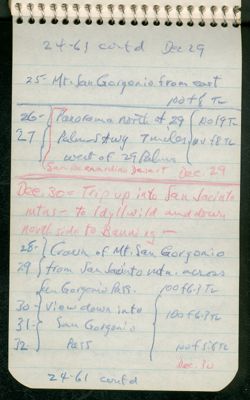 24-61 cont'd Dec 29
25- Mt. San Gorgonio from east
100 f8 TL
26- Panorama north of 29 100 f9 TL
27 Palms Hwy 7 miles 100 f8 TL
west of 29 Palms
San Bernardino Desert Dec. 29
Dec. 30 - Trip up into San Jacinto
mtns - to Idyllwild and down
north side to Banning -
28- Crown of Mt. San Gorgonio
29 from San Jacinto mtn. across
San Gorgonio Pass. 100 f6.3 TL
30- View down into
31- San Gorgonio 100 f6.3 TL
32 Pass 100 f5.6 TL
Dec. 30
24-61 cont'd